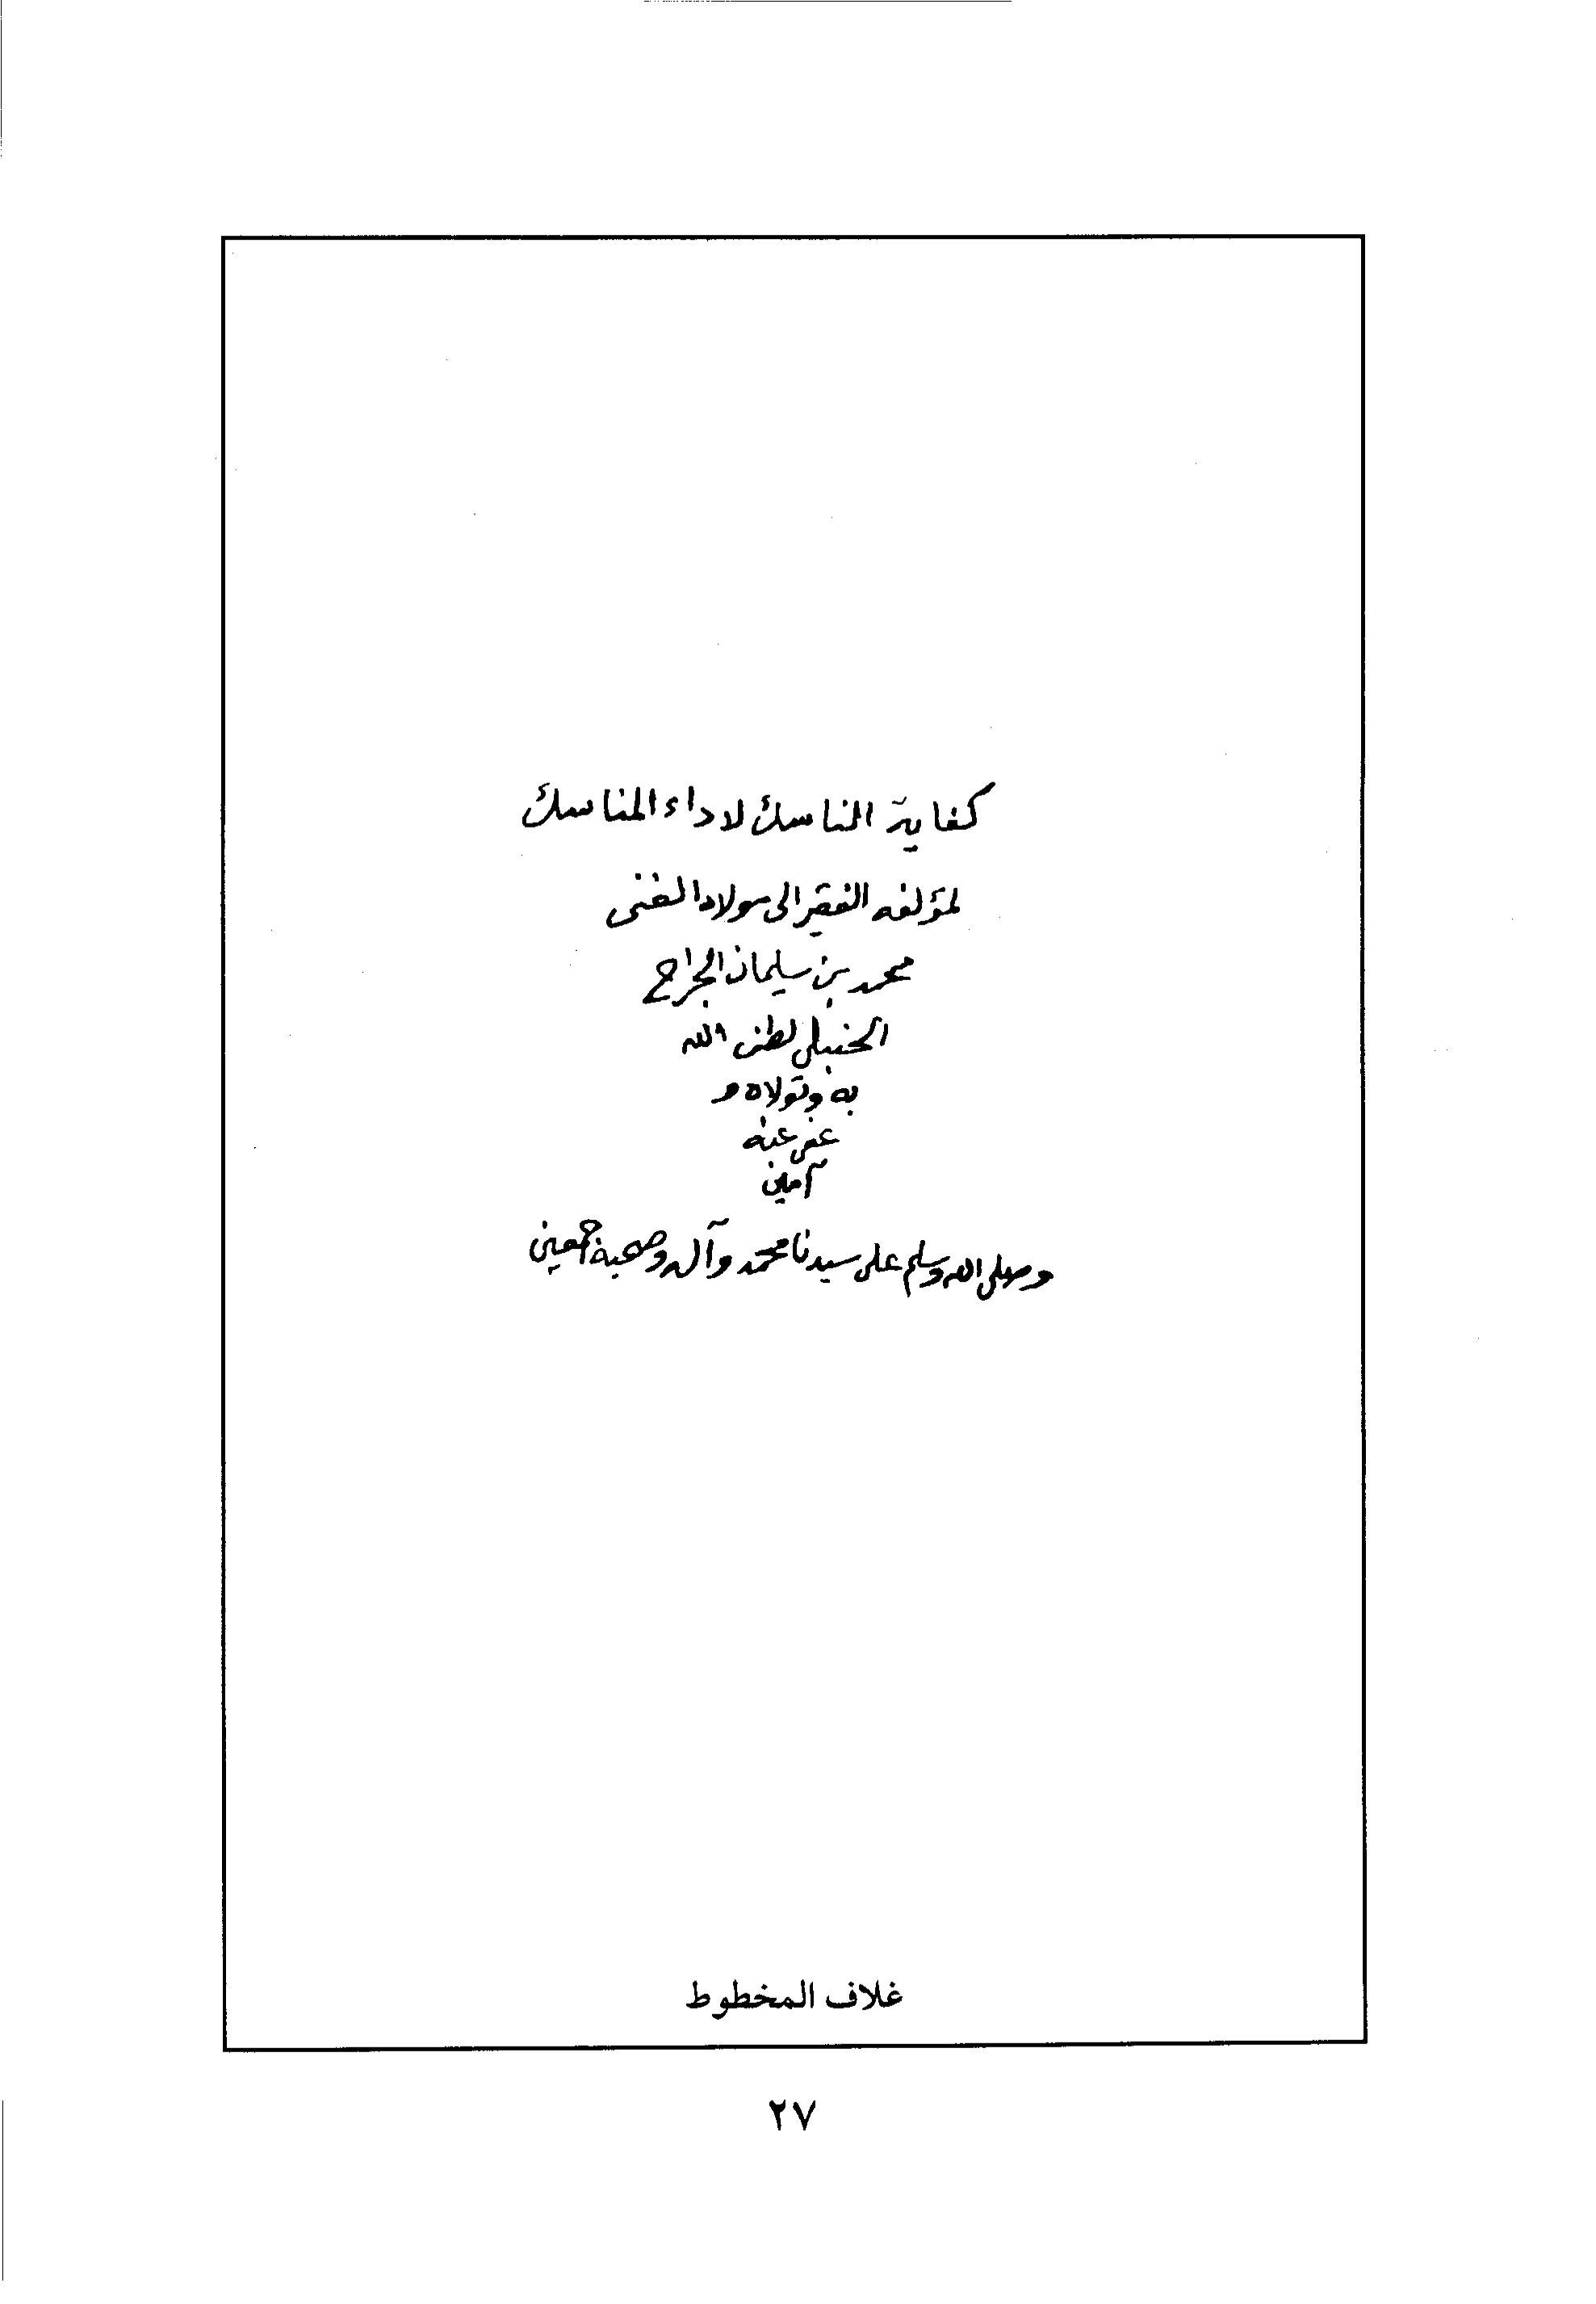 كفاية الناسك لاداء المناسك
لمؤلفه الفقير الى مولاه الغني
محمد بن سليمان الجراح
الحنبلي لطف الله
به وتولاه و
عفى عنه
آمين
وصلى الله وسلم على سيدنا محمد وآله وصحبه اجمعين
غلاف المخطوط
٢٧